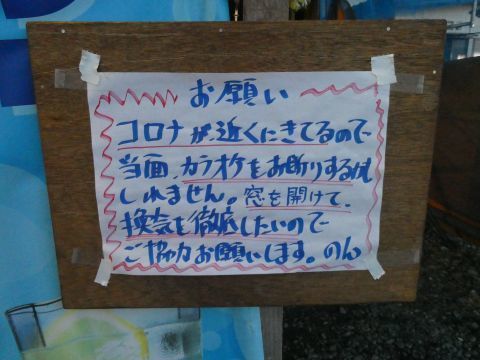 お願い
コロナが近くにきてるので
当面、カラオケをお断りするかも
しれません。窓を開けて、
換気を徹底したいので
ご協力お願いします。のん